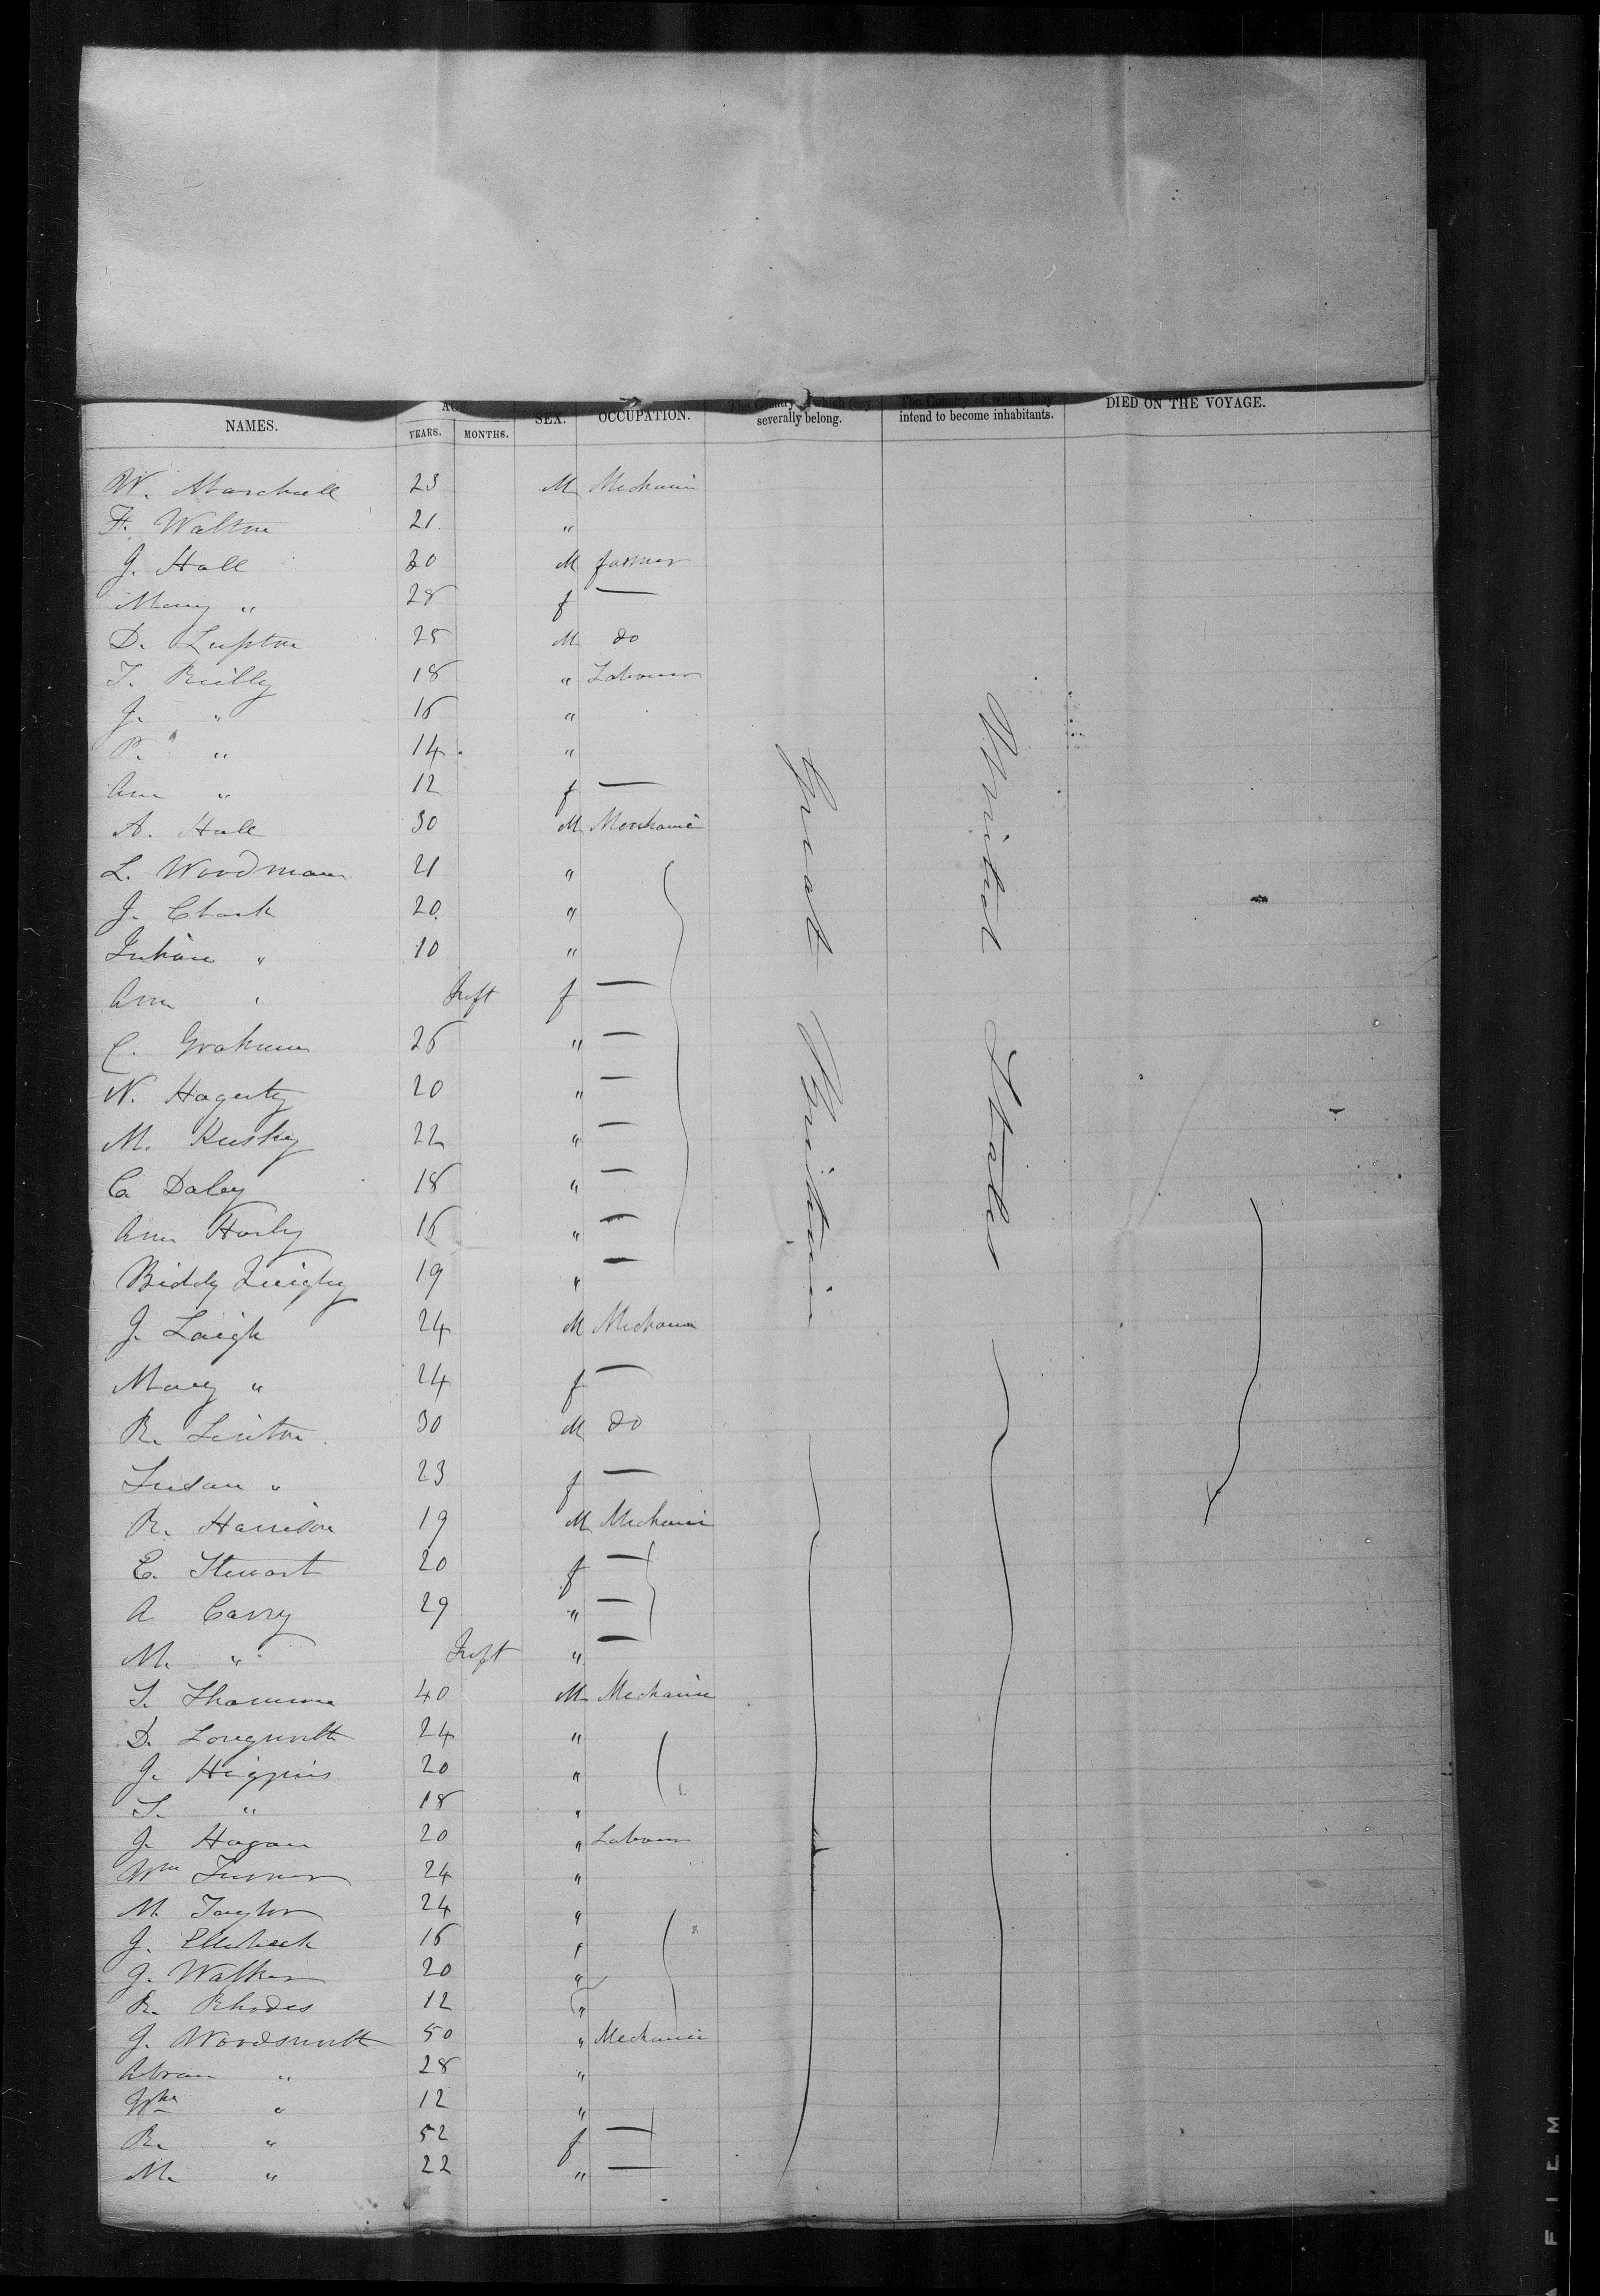 NAMES. YEARS. MONTHS. SEX. OCCUPATION. The Country of which they severally belong. The Country of which they intend to become inhabitants. DIED ON THE VOYAGE.
W. Marshall 23 M Mechanic
F. Walton 21 "
J. Hall 30 M farmer
Mary " 28 f —
D. Lupton 25 M do
T. Reilly 18 " Labourer
J. " 16 "
P. " 14 "
Ann " 12 f —
A. Hall 30 M Mechanic
L. Woodman 21 "
J. Clark 20 "
" 10 "
Ann " Inft f —
C. Graham 26 " —
N. Hagerty 20 " —
M. 22 " —
Ca Daley 18 " —
Ann 16 " —
Biddy Quigley 19 " —
J. Laigh 24 M Mechanic
Mary " 24 f —
R. Linton 30 M do
Susan " 23 f —
R. Harrison 19 M Mechanic
E. Stewart 20 f —
A Carry 29 " —
M. " Inft " —
40 M Mechanic
D. Longworth 24 "
J. Higgins 20 "
S. " 18 "
J. Hogan 20 " Labourer
Wm Turner 24 "
M. Taylor 24 "
J. 16 "
J. Walker 20 "
R. Rhodes 12 "
J. Woodsworth 50 " Mechanic
Abram " 28 "
" 12 "
R. " 52 f —
M. " 22 " —
Great Britain
United States
FILM